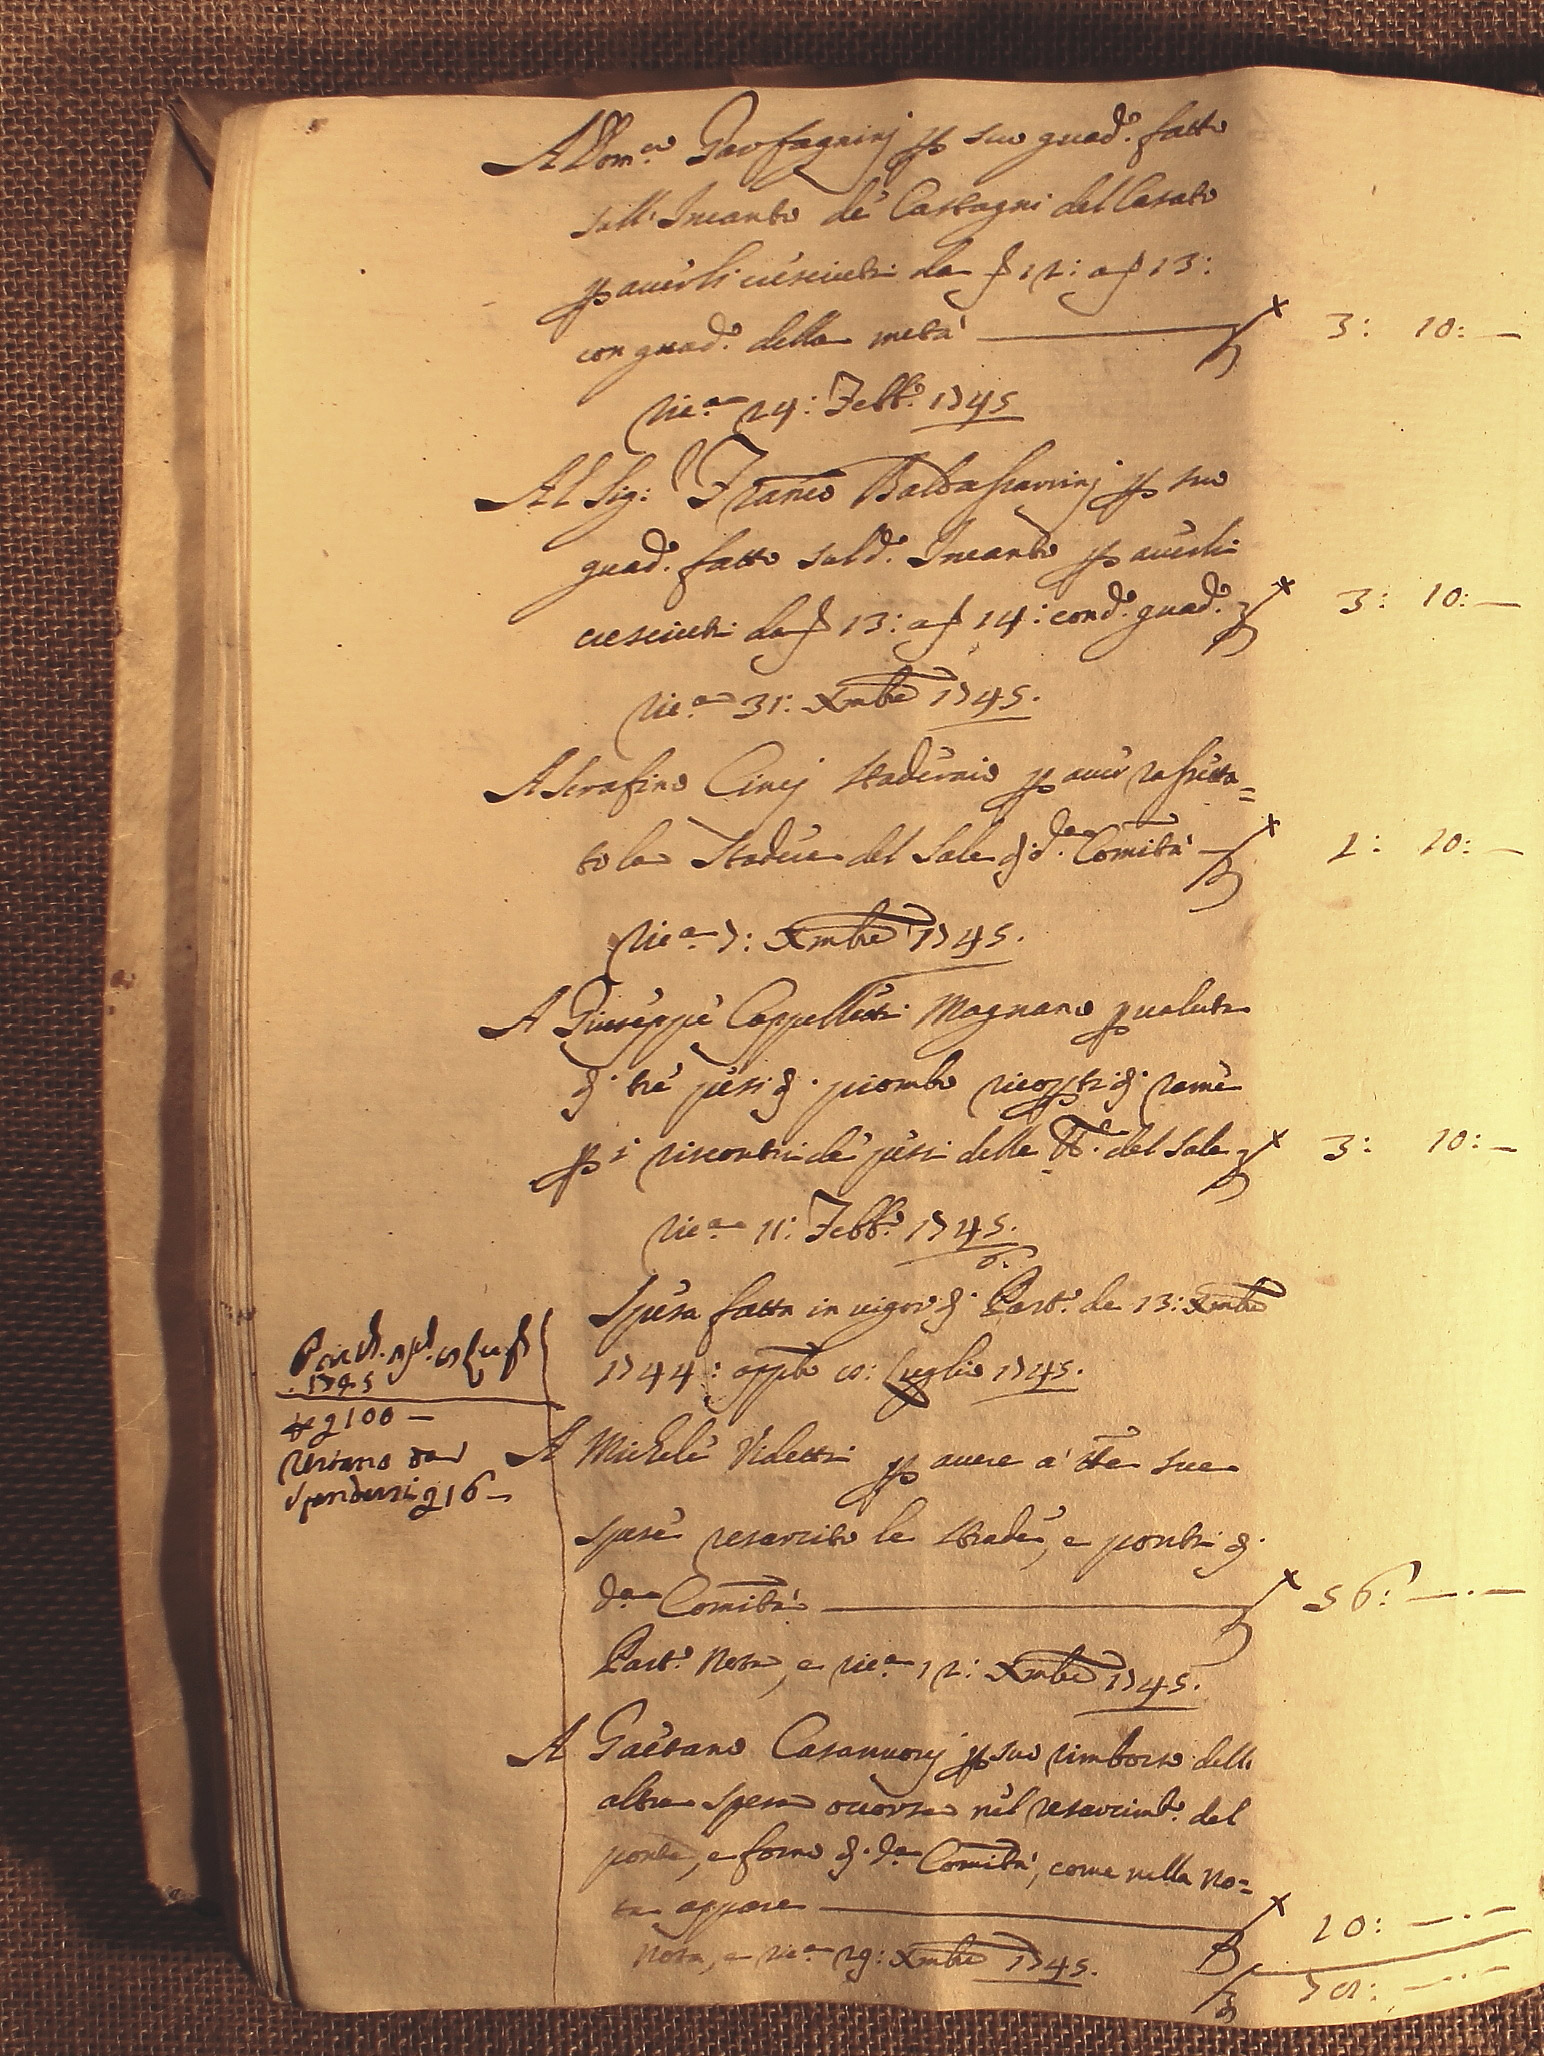 A Dom.co Garfagninj p suo guad.o fatto
sull'Incanto de Castagni del Casato
p averli cresciuti da ƒ 12: a ƒ 13:
con guad.o della metà 3: 10: —
Ric.a 24: Febb.o 1745
Al Sig: Franco Baldassarrinj p suo
guad.o fatto sul d.o Incanto p averli
cresciuti da ƒ 13: a ƒ 14: con d.o guad.o 3: 10: —
Ric.a 31: Xmbre 1745.
A Serafino Cinej Staderaio p aver rassetta=
to la Stadera del Sale di d.a Comità 1: 10: —
Ric.a 7: Xmbre 1745.
A Giuseppe Cappelletti Magnano p valuta
di tre pesi di piombo ricopti di rame
p i riscontri de pesi delle del Sale 3: 10: —
Ric.a 11: Febb.o 1745.
6.
Spesa fatta in vigor di Part.o de 13: Xmbre
1744: appto Luglio 1745.
1745
2100 —
restano da
spendersi 216 —
A Michele Videtti p avere a tta sue
spese resarcito le strade, e ponti di
d.a Comità 56: — . —
Part.o Nota, e ric.a 12: Xmbre 1745.
A Gaetano Casanuovj p suo rimborso delle
altre spese occorse nel resarcimt.o del
ponte, e forno di d.a Comità, come nella No=
ta appare 20: — . —
Nota, e ric.a 29: Xmbre 1745.